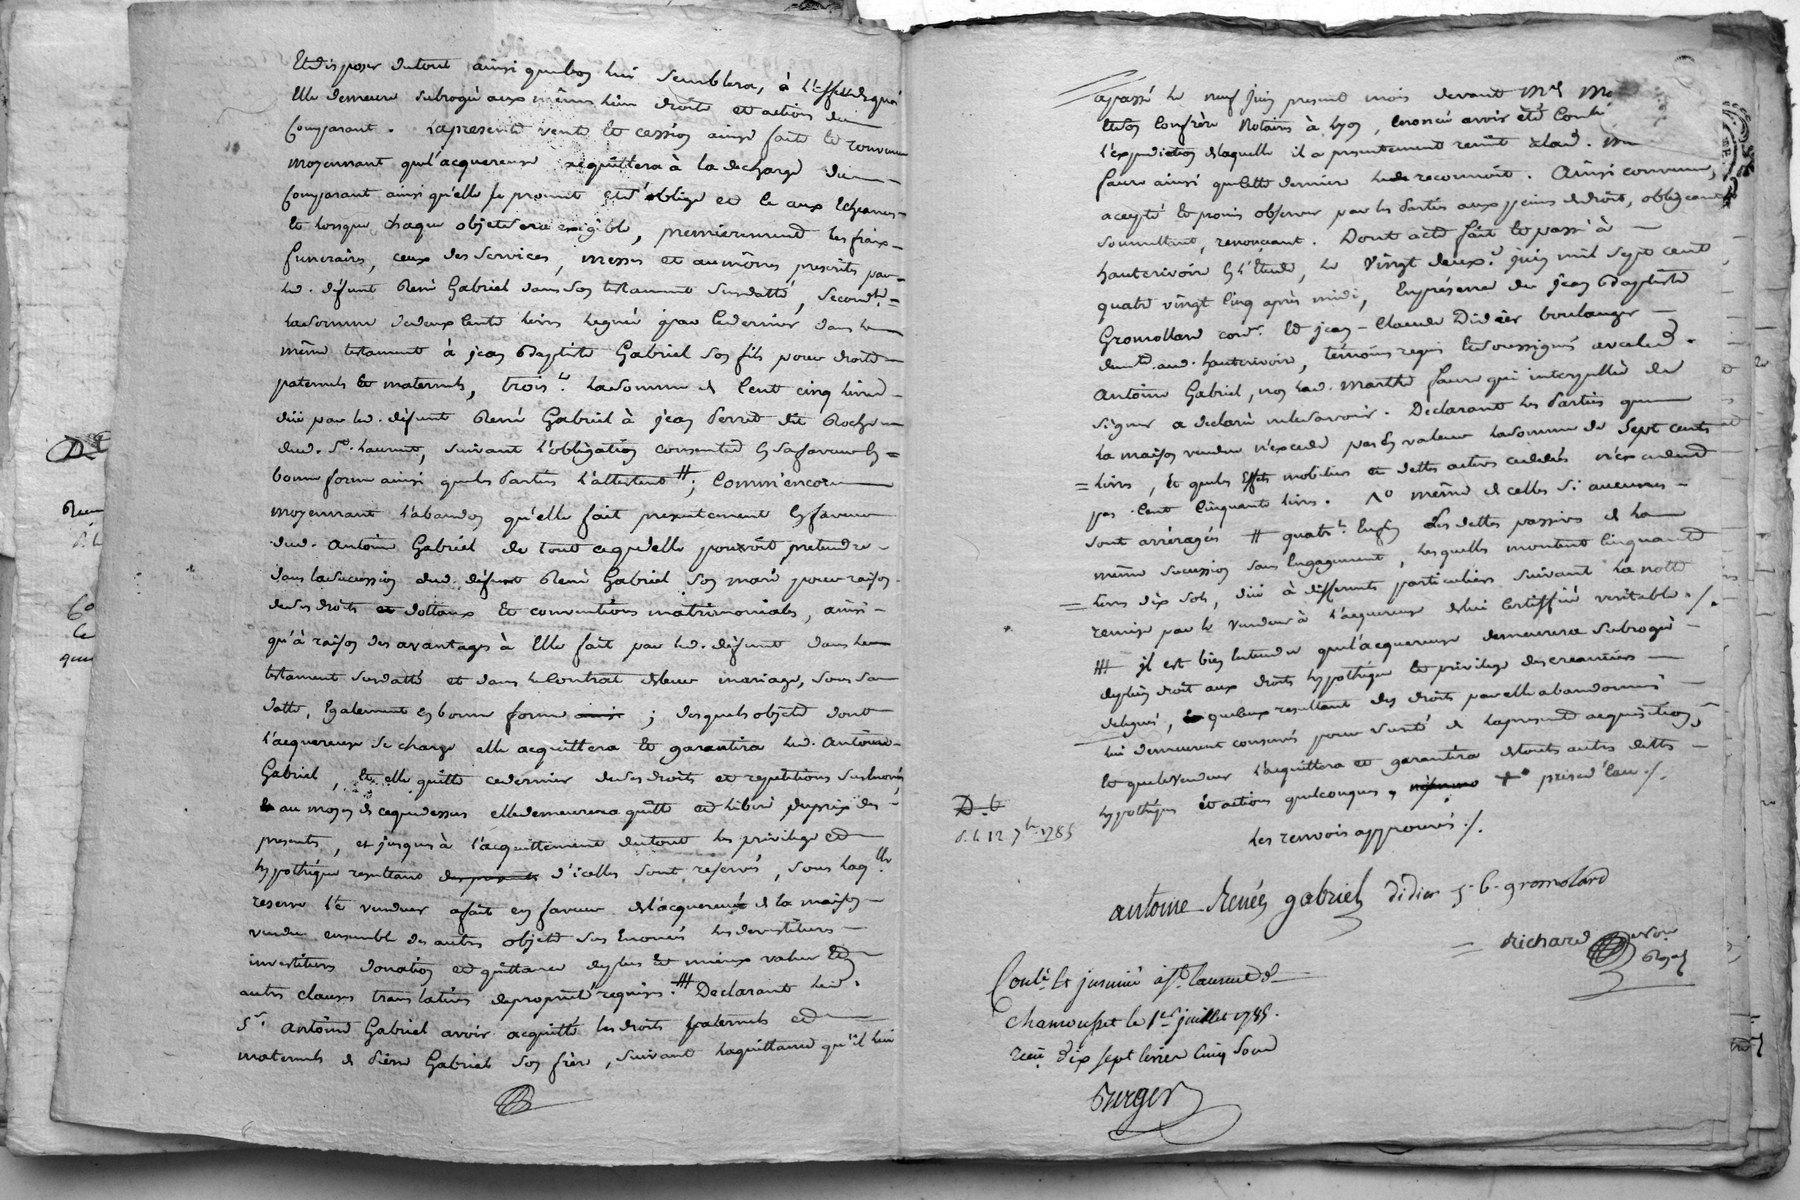 Et disposer dutout ainsi quebon lui semblera, à l'Effet dequoi
Elle demeure subrogé aux mêmes lieu droits et actions du
Comparant. Lapresente vente et cession ainsi faite et convenue
moyennant quel'acquereuse acquittera à la decharge du
Comparant ainsi qu'elle le promet et s'oblige et ce aux Echeances
et lorsque chaque objet sera exigible, premierement les fraix
funeraires, ceux des services, messes et aumônes prescrits par
led. défunt René Gabriel dans son testament susdatté, second.t
lasomme dedeux cents livres leguée par cedernier dans le
même testament à jean Baptiste Gabriel son fils pour droits
paternels et maternels, trois.t lasomme de Cent cinq livres
düe par led. défunt René Gabriel à jean Perret dit Rochon
dud. St. laurent, suivant l'obligation consentie en safaveur en
bonne forme ainsi queles Parties l'attestent #; Comm'encore
moyennant l'abandon qu'elle fait presentement en faveur
dud. Antoine Gabriel de tout cequ'elle pouvoit pretendre
dans lasuccession dud. défunt René Gabriel son mari pour raison
deses droits et dottaux et conventions matrimoniales, ainsi
qu'à raison des avantages à Elle fait par led. défunt dans le
testament susdatté et dans leContrat deleur mariage, sous sa
datte, Egalement en bonne forme ; desquels objets dont
l'acquereuse se charge elle acquittera et garantira led. Antoine
Gabriel, Et elle quitte cedernier deses droits et repetitions susEnoncés
au moyen de cequedessus elledemeurera quitte et liberé duprix des
presents, et jusques à l'acquittement dutout les privilege et
hypothéque resultant des presents d'icelles sont reservés, sous laq.lle
reserve le vendeur afait en faveur del'acquereuse de la maison
vendue ensemble des autres objets sus Enoncés les devestitures
investitures donation et quittance deplus et mieux value et
autres clauses translatives depropriété requises. ### Declarant led.
Sr. Antoine Gabriel avoir acquitté les droits paternels et
maternels de Pierre Gabriel son frère, suivant laquittance qu'il lui
apassé le neuf juin present mois devant Me
Etson Confrère Notaires à Lyon, Enoncé avoir été Contl
l'expedition delaquelle il a presentement remit alad.
faure ainsi queCette derniere le reconnoit. Ainsi convenu,
accepté et promis observer par les Parties aux peines dedroit, obligeant
soumettant, renonceant. Dont acte fait et passé à
hauterivoire En l'Etude, le Vingt deux.e juin mil sept cent
quatre vingt Cinq après midi, En présence de jean Baptiste
Gromollard cord.r Et jean-Claude Didier boulanger
dem.t aud. hauterivoire, témoins requis Etsoussignés avecled.
Antoine Gabriel, non lad. Marthe faure qui interpellée de
signer a declaré nelesavoir. Declarant les Parties que
la maison vendue n'excede pas En valeur lasomme de sept cents
= livres, Et queles Effets mobiliers et dettes actives cedées n'excedent
pas Cent Cinquante livres. No même de celles si aucunes
sont arréragés # quatr.t Enfin Les dettes passives de la
même succession sans Engagement, lesquelles montent Cinquante
= livres dix sols, dües à differents particuliers suivant la notte
remise par le vendeur à l'acquereuse delui Certiffiée veritable ./.
### il est bien Entendu quel'acquereuse demeurera subrogée
deplein droit aux droits hypothéque et privilege descreanciers
delegués, quelux resultant des droits par elle abandonnés
lui demeurent conservés pour sureté de lapresente acquisition,
Et quelevendeur l'acquittera et garantira detoutes autres dettes
hypothéques Et actions quelconques, prisend'eau ./.
Les renvois approuvés ./.
antoine Renée gabriel didier j. b. gromolard
= Richard
D. C
d. l. 12 7bre 1785
Conlé Et jnsinué à St. laurent de
Chamousset le 1er juillet 1785.
reçu dix sept livres Cinq Sous
Burger